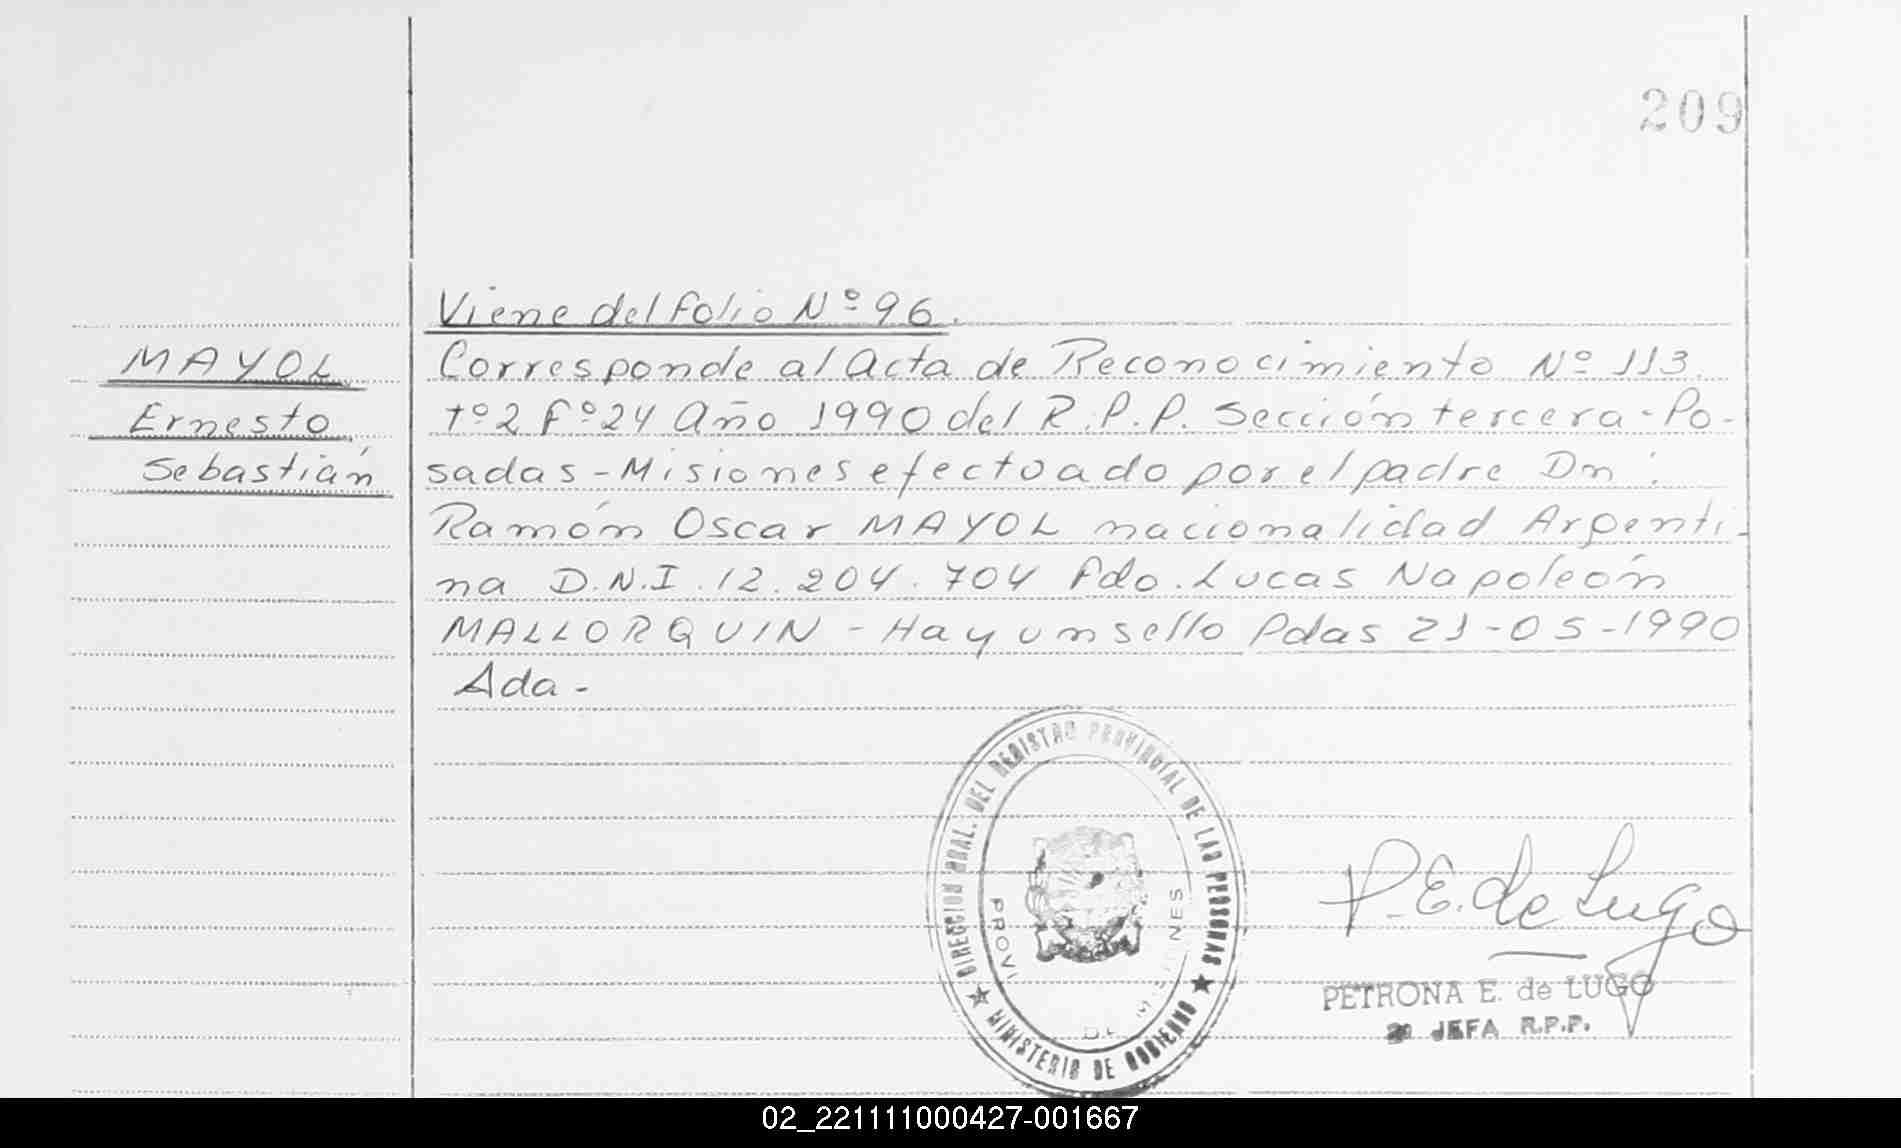 209
Viene del folio Nº 96.
MAYOL
Ernesto
Sebastián
Corresponde al Acta de Reconocimiento Nº 113.
tº 2 Fº 24 Año 1990 del R.P.P. Sección tercera - Po-
sadas - Misiones efectuado por el padre Dn:
Ramón Oscar MAYOL nacionalidad Argenti-
na D.N.I. 12.204.704 Fdo. Lucas Napoleón
MALLORQUIN - Hay un sello Pdas 21-05-1990
Ada -
DIRECCION GRAL. DEL REGISTRO PROVINCIAL DE LAS PERSONAS
MINISTERIO DE GOBIERNO
DE MISIONES
P.E. de Lugo
PETRONA E. de LUGO
JEFA R.P.P.
02_221111000427-001667